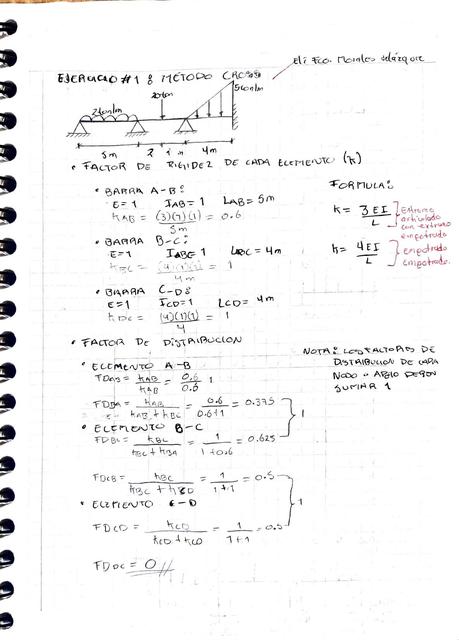 Elí Fco. Morales Velázquez
EJERCICIO #1: MÉTODO CROSS
2ton/m
20ton
5ton/m
5m 2 2 4m
• FACTOR DE RIGIDEZ DE CADA ELEMENTO (k)
• BARRA A-B:
E=1 IAB=1 LAB=5m
kAB = (3)(1)(1) = 0.6
5m
• BARRA B-C:
E=1 IBC=1 LBC=4m
kBC = (4)(1)(1) = 1
4m
• BARRA C-D:
E=1 ICD=1 LCD=4m
kDC = (4)(1)(1) = 1
4
FORMULA:
k = 3EI
L
Extremo
articulado
con extremo
empotrado
k = 4EI
L
empotrado
empotrado.
• FACTOR DE DISTRIBUCION
NOTA: LOS FACTORES DE
DISTRIBUCION DE CADA
NODO DEBEN
SUMAR 1
• ELEMENTO A-B
FDAB = kAB = 0.6 1
kAB 0.6
FDBA = kAB = 0.6 = 0.375
kAB + kBC 0.6+1
1
• ELEMENTO B-C
FDBC = kBC = 1 = 0.625
kBC + kBA 1+0.6
FDCB = kBC = 1 = 0.5
kBC + kCD 1+1
1
• ELEMENTO C-D
FDCD = kCD = 1 = 0.5
kCD + kCD 1+1
FDDC = 0